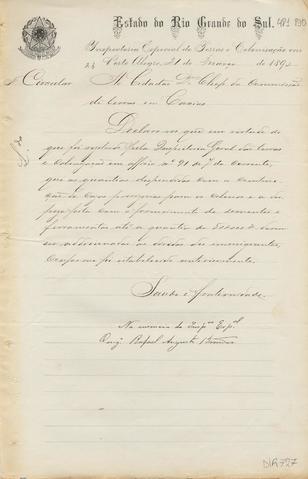 Estado do Rio Grande do Sul. 491 890
Inspectoria Especial de Terras e Colonisação em
Porto Alegre, 21 de Março de 189
Circular Ao Cidadão Chefe da Commissão
de terras em Caxias
Declaro-vos que em virtude do
que foi resolvido pela Inspectoria Geral das terras
e Colonização em officio nº 91 de 7 do corrente,
que as quantias despendidas com a construc-
ção de casas provisorias para os colonos e a des-
peza feita com o fornecimento de sementes e
ferramentas até a quantia de devem
ser addicionadas as dividas dos immigrantes,
conforme foi estabelecido anteriormente.
Saude e fraternidade.
Na ausencia do Insp.or Esp.al
Eng.º Rafael Augusto
DIR727